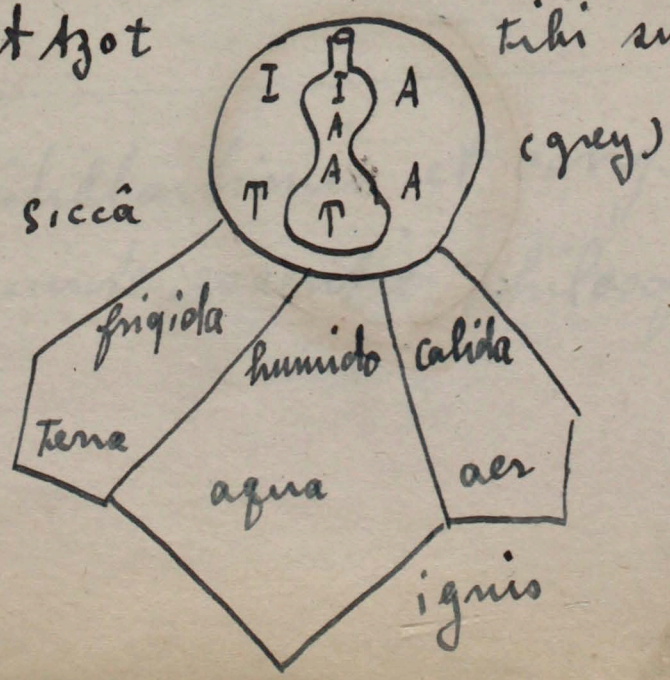 t Azot tibi su
I I A
A
(grey)
A
T A
T
siccâ
frigida
humido calida
Terra
aqua aer
ignis